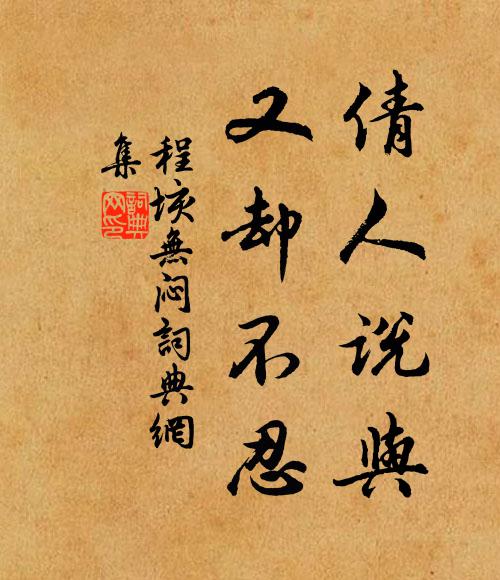 倩人説與
又却不忍
程垓無悶詞典網
集
詞典
网印